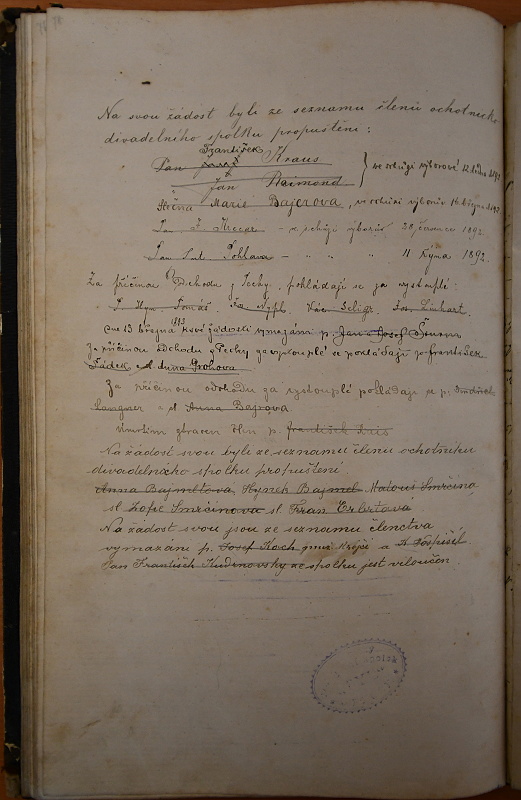 Na svou žádost byli ze seznamu členů ochotnick.
divadelního spolku propuštěni:
František
Pan Kraus
Jan Raimond
ve schůzi výborové 12 ledna 1892
Slečna Marie Bajerova, ve schůzi výboru 16 března 1892
Pan F. - schůzi výboru 28. července 1892
Pan Lud. Pohlava - " " " 11 října 1892.
Za příčinou Odchodu z Techy pokládají se za vystouplé
P. Hyn. Tomáš. Fr. Appl Vác. Seligr. Jan Linhart.
Dne 13 března 1893 k své žádosti vymazáni p. Jan a Josef Šturm
Za příčinou odchodu z Techy za vystouplé se pokládají p. František
Fádek a sl. Anna Prohova
Za příčinou odchodu za vystouplé pokládaje se p. Jindřich
Langner a sl Anna Bajrova
úmrtím ztracen člen p. František
Na žádost svou byli ze seznamu členu ochotníku
divadelnáho spolku propuštění
Anna Bajmeltova, Hynek Bajmel Matouš Smrčina
sl. Žofie Smrčinova sl. Fran Erlbetova
Na žádost svou jsou ze seznamu členctva
vymazáni p. Josef Koch pnus Krejčí a A. Pospíšil
Pan František Kudrnovsky ze spolku jest vyloučen